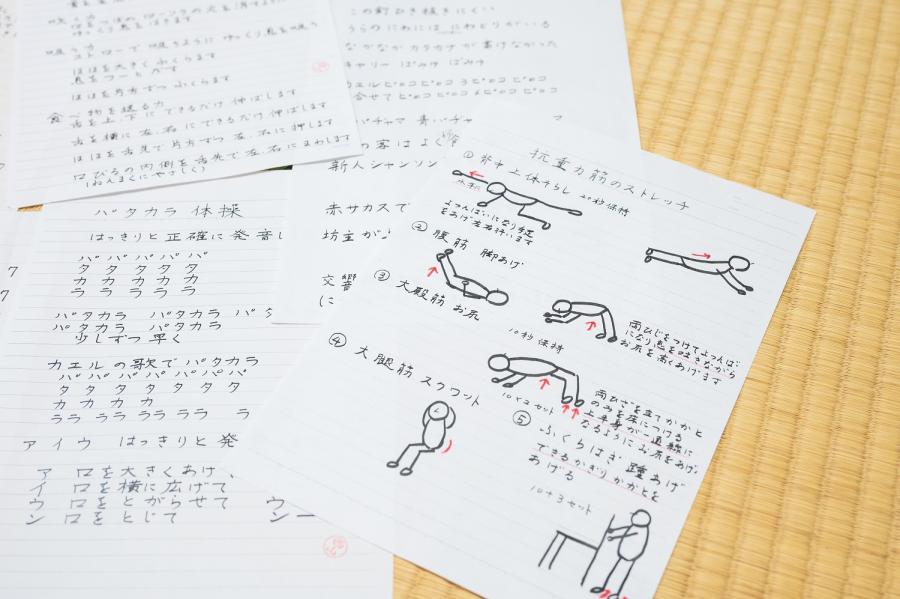 吸う力
ストローで吸うように ゆっくり息を吸う
ほほを大きく ふくらます
ほほを片方ずつ ふくらます
食べ物を送る力
舌を上、下にできるだけ伸ばします
舌を横に左、右にできるだけ伸ばします
ほほを舌先で片方ずつ左、右に押します
口びるの内側を舌先で左、右にまわします
(ねんまくにやさしく)
この釘ひき抜きにくい
うらのにわには にわとりがいる
なかなかカタカナが書けなかった
キャリー ぱみゅ ぱみゅ
カエルピョコピョコ 3ピョコピョコ
合せてピョコピョコ 6ピョコピョコ
パジャマ 青パジャ
の客はよく
新人シャンソン
赤サカスで
坊主が
交響
に
パタカラ 体操
はっきりと正確に発音し
パパパパパ
タタタタタ
カカカカカ
ララララ
パタカラ パタカラ パタ
パタカラ パタカラ
少しずつ 早く
カエルの歌で パタカラ
パパパパパパパ
タタタタタタタ
カカカカ
ララ ララ ララ ララ ラ
アイウ はっきりと発
ア 口を大きくあけ、
イ 口を横に広げて
ウ 口をとがらせて ウ
ン 口をとじて ンー
抗重力筋のストレッチ
① 背中 上体そらし 20秒保持
水平に
よつんばいになり手足
をあげ左右行います
② 腹筋 脚あげ
③ 大殿筋 お尻
10秒保持
両ひじをつけてよつんばい
になり息を吐きながら
お尻を高くあげます
④ 大腿筋 スクワット
10×2セット
両ひざを立てかかと
のみを床につける
上半身が一直線に
なるようにお尻をあげ
⑤ ふくらはぎ 踵あげ
できるかぎり かかとを
あげる
10×3セット